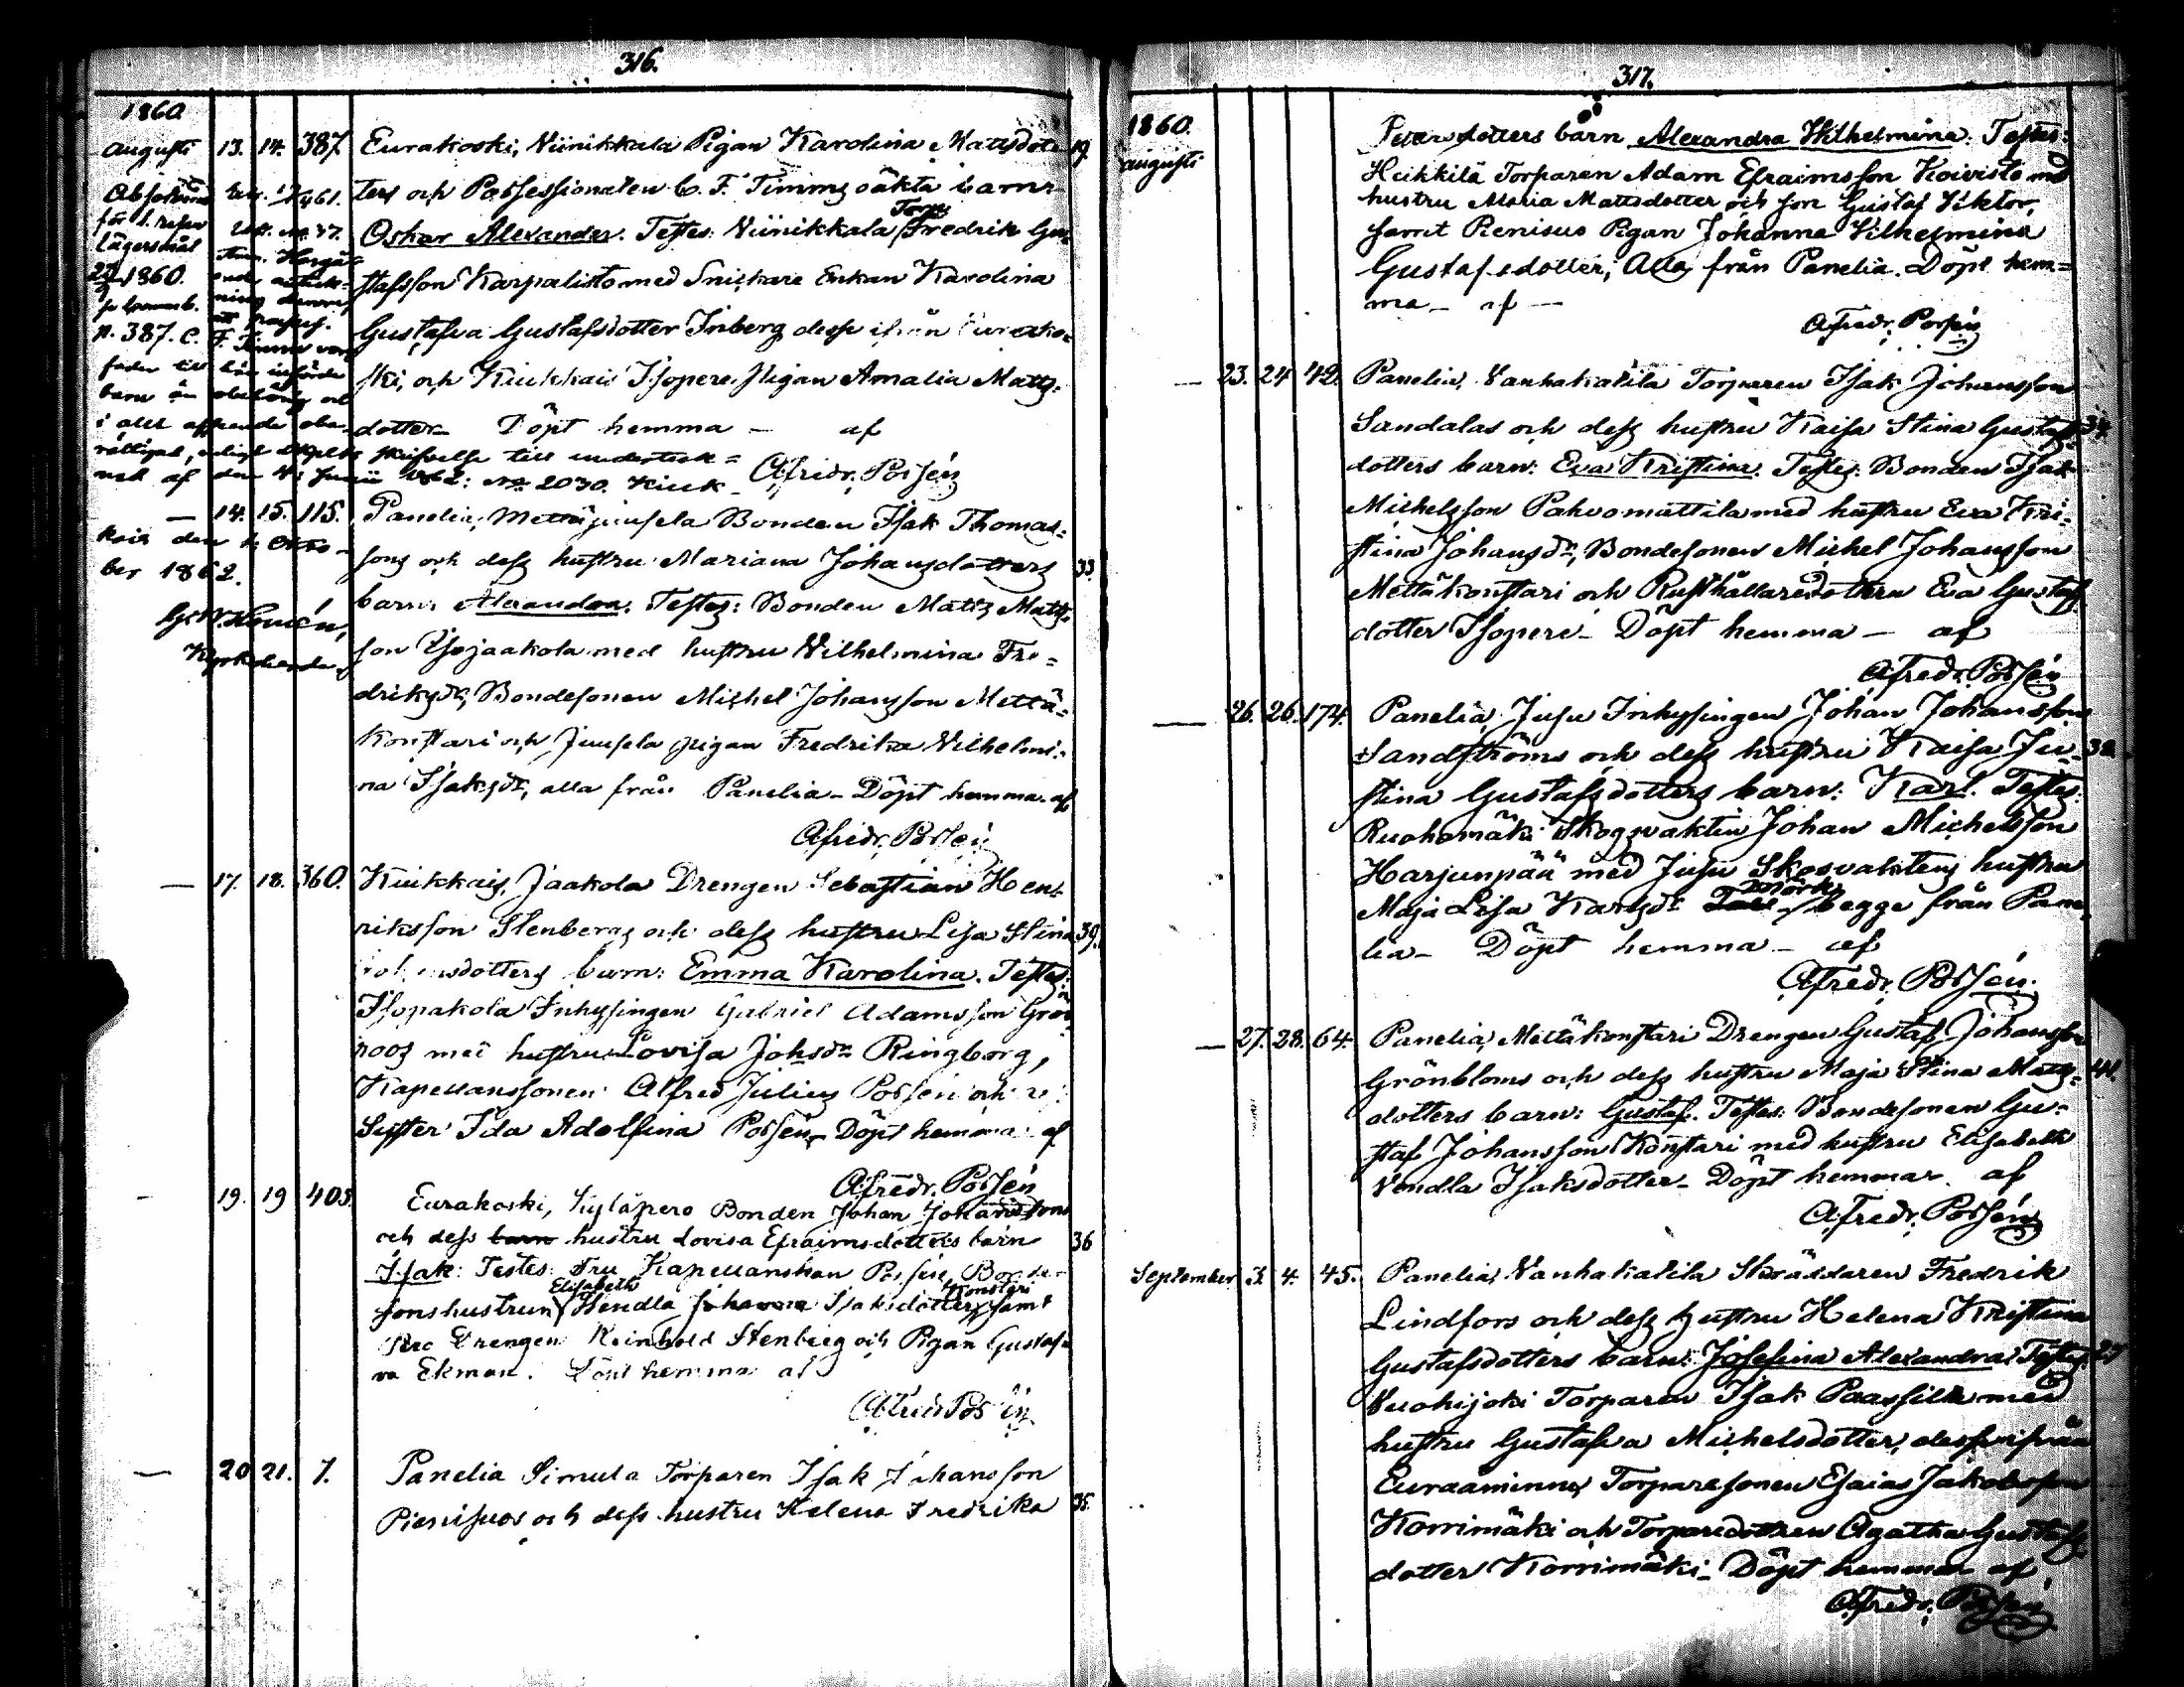 316.
1860
Augusti 13. 14. 387. Eurakoski, Niinikkala Pigan Karolina Mattsdot= 19.
ters och Possessionaten C. F. Timms oäkta barn:
Torp.
Oskar Alexander. Testes: Niinikkala Fredrik Gu=
stafsson Karpalisto med Snickare Enkan Karolina
Gustafva Gustafsdotter Inberg desse ifrån Eurako=
ski, och Kiukkais Isopere Pigan Amalia Matts=
dotter Döpt hemma — af
Afredr. Possén
Absolverad
för l. resan
Lägersmål
1860.
p. 387. C. F. Timms
fader till här införde
barn
i allt
rättigad, enligt
net af den Junii 1862: No 2030. Kiuk
kais den Octo-
ber 1862.
Kyrkoherde
— 14. 15. 115. Panelia, Mettäjuusela Bonden Isak Thomas=
sons och dess hustru Mariana Johansdotters 33.
barn: Alexandra. Testes: Bonden Matts Matts=
son Isojaakola med hustru Wilhelmina Fre=
driksdr, Bondesonen Michel Johansson Mettä=
konstari och Juusela pigan Fredrika Wilhelmi=
na Isaksdr, alla från Panelia – Döpt hemma af
Afredr. Possén
— 17. 18. 360. Kiukkais, Jaakola Drengen Sebastian Hen=
riksson Stenbergs och dess hustru Lisa Stina 39.
barn: Emma Karolina. Testes:
Isojakola Inhysingen Gabriel Adamsson Grön
roos med hustru Lovisa Johsdr Ringborg,
Kapellanssonen Alfred Julius Possén och
Syster Ida Adolfina Possén – Döpt hemma af
Afredr. Possén
— 19. 19 403. Eurakoski, Kyläpero Bonden Johan Johanssons
och dess barn hustru Lovisa Efraimsdotters barn 36
Isak: Testes: Fru Kapellanskan Possén, Bonde-
Elisabeth Konstari
sonshustrun Wendla Johanna Isaksdotter samt
Pero Drengen Reinhold Stenberg och Pigan Gustaf-
va Ekman. Döpt hemma af
Afredr. Possén
— 20 21. 7. Panelia Simula Torparen Isak Johansson
Pienisuos och dess hustru Helena Fredrika 35.
317.
1860.
augusti
dotters barn Alexandra Wilhelmina. Testes:
Heikkilä Torparen Adam Efraimsson Koivisto med
hustru Maria Mattsdotter och son Gustaf Viktor,
samt Pienisuo Pigan Johanna Vilhelmina
Gustafsdotter, Alla från Panelia. Döpt hem=
ma – af —
Afredr. Possén
— 23. 24 42. Panelia, Vanhakatila Torparen Isak Johansson
Sandalas och dess hustru Kaisa Stina Gustafs= 34.
dotters barn: Eva Kristina. Testes: Bonden Isak
Michelsson Pahvomattila med hustru Eva Kri=
stina Johansdr, Bondesonen Michel Johansson
Mettäkonstari och Rusthållaredottren Eva Gustafs
dotter Isopere – Döpt hemma — af
Afredr. Possén
— 26. 26. 174. Panelia, Jusu Inhysingen Johan Johansson
Sandströms och dess hustru Kaisa Ju= 38.
stina Gustafsdotters barn: Karl. Testes:
Ruohomäki Skogvaktin Johan Michelsson
Harjunpää med Jusu Skogvaktens hustru
Maja Lisa Karlsdr begge från Pane
lia – Döpt hemma — af
Afredr. Possén.
— 27. 28. 64. Panelia, Mettäkonstari Drengen Gustaf Johansson
Grönbloms och dess hustru Maja Stina Matts= 41.
dotters barn: Gustaf. Testes: Bondesonen Gu=
staf Johansson Konstari med hustru Elisabeth
Vendla Isaksdotter – Döpt hemma af
Afredr. Possén
September 3. 4. 45. Panelia, Vanhakatila Skräddaren Fredrik
Lindfors och dess hustru Helena Kristina
Gustafsdotters barn: Josefina Alexandra. Testes: 27
Vuohijoki Torparen Isak Paassilta med
hustru Gustafva Michelsdotter, desse ifrån
Euraaminne, Torparesonen Esaias Jakobsson
Korrimäki och Torparedottren Agatha Gustafs=
dotter Korrimäki – Döpt hemma af
Afredr. Possén